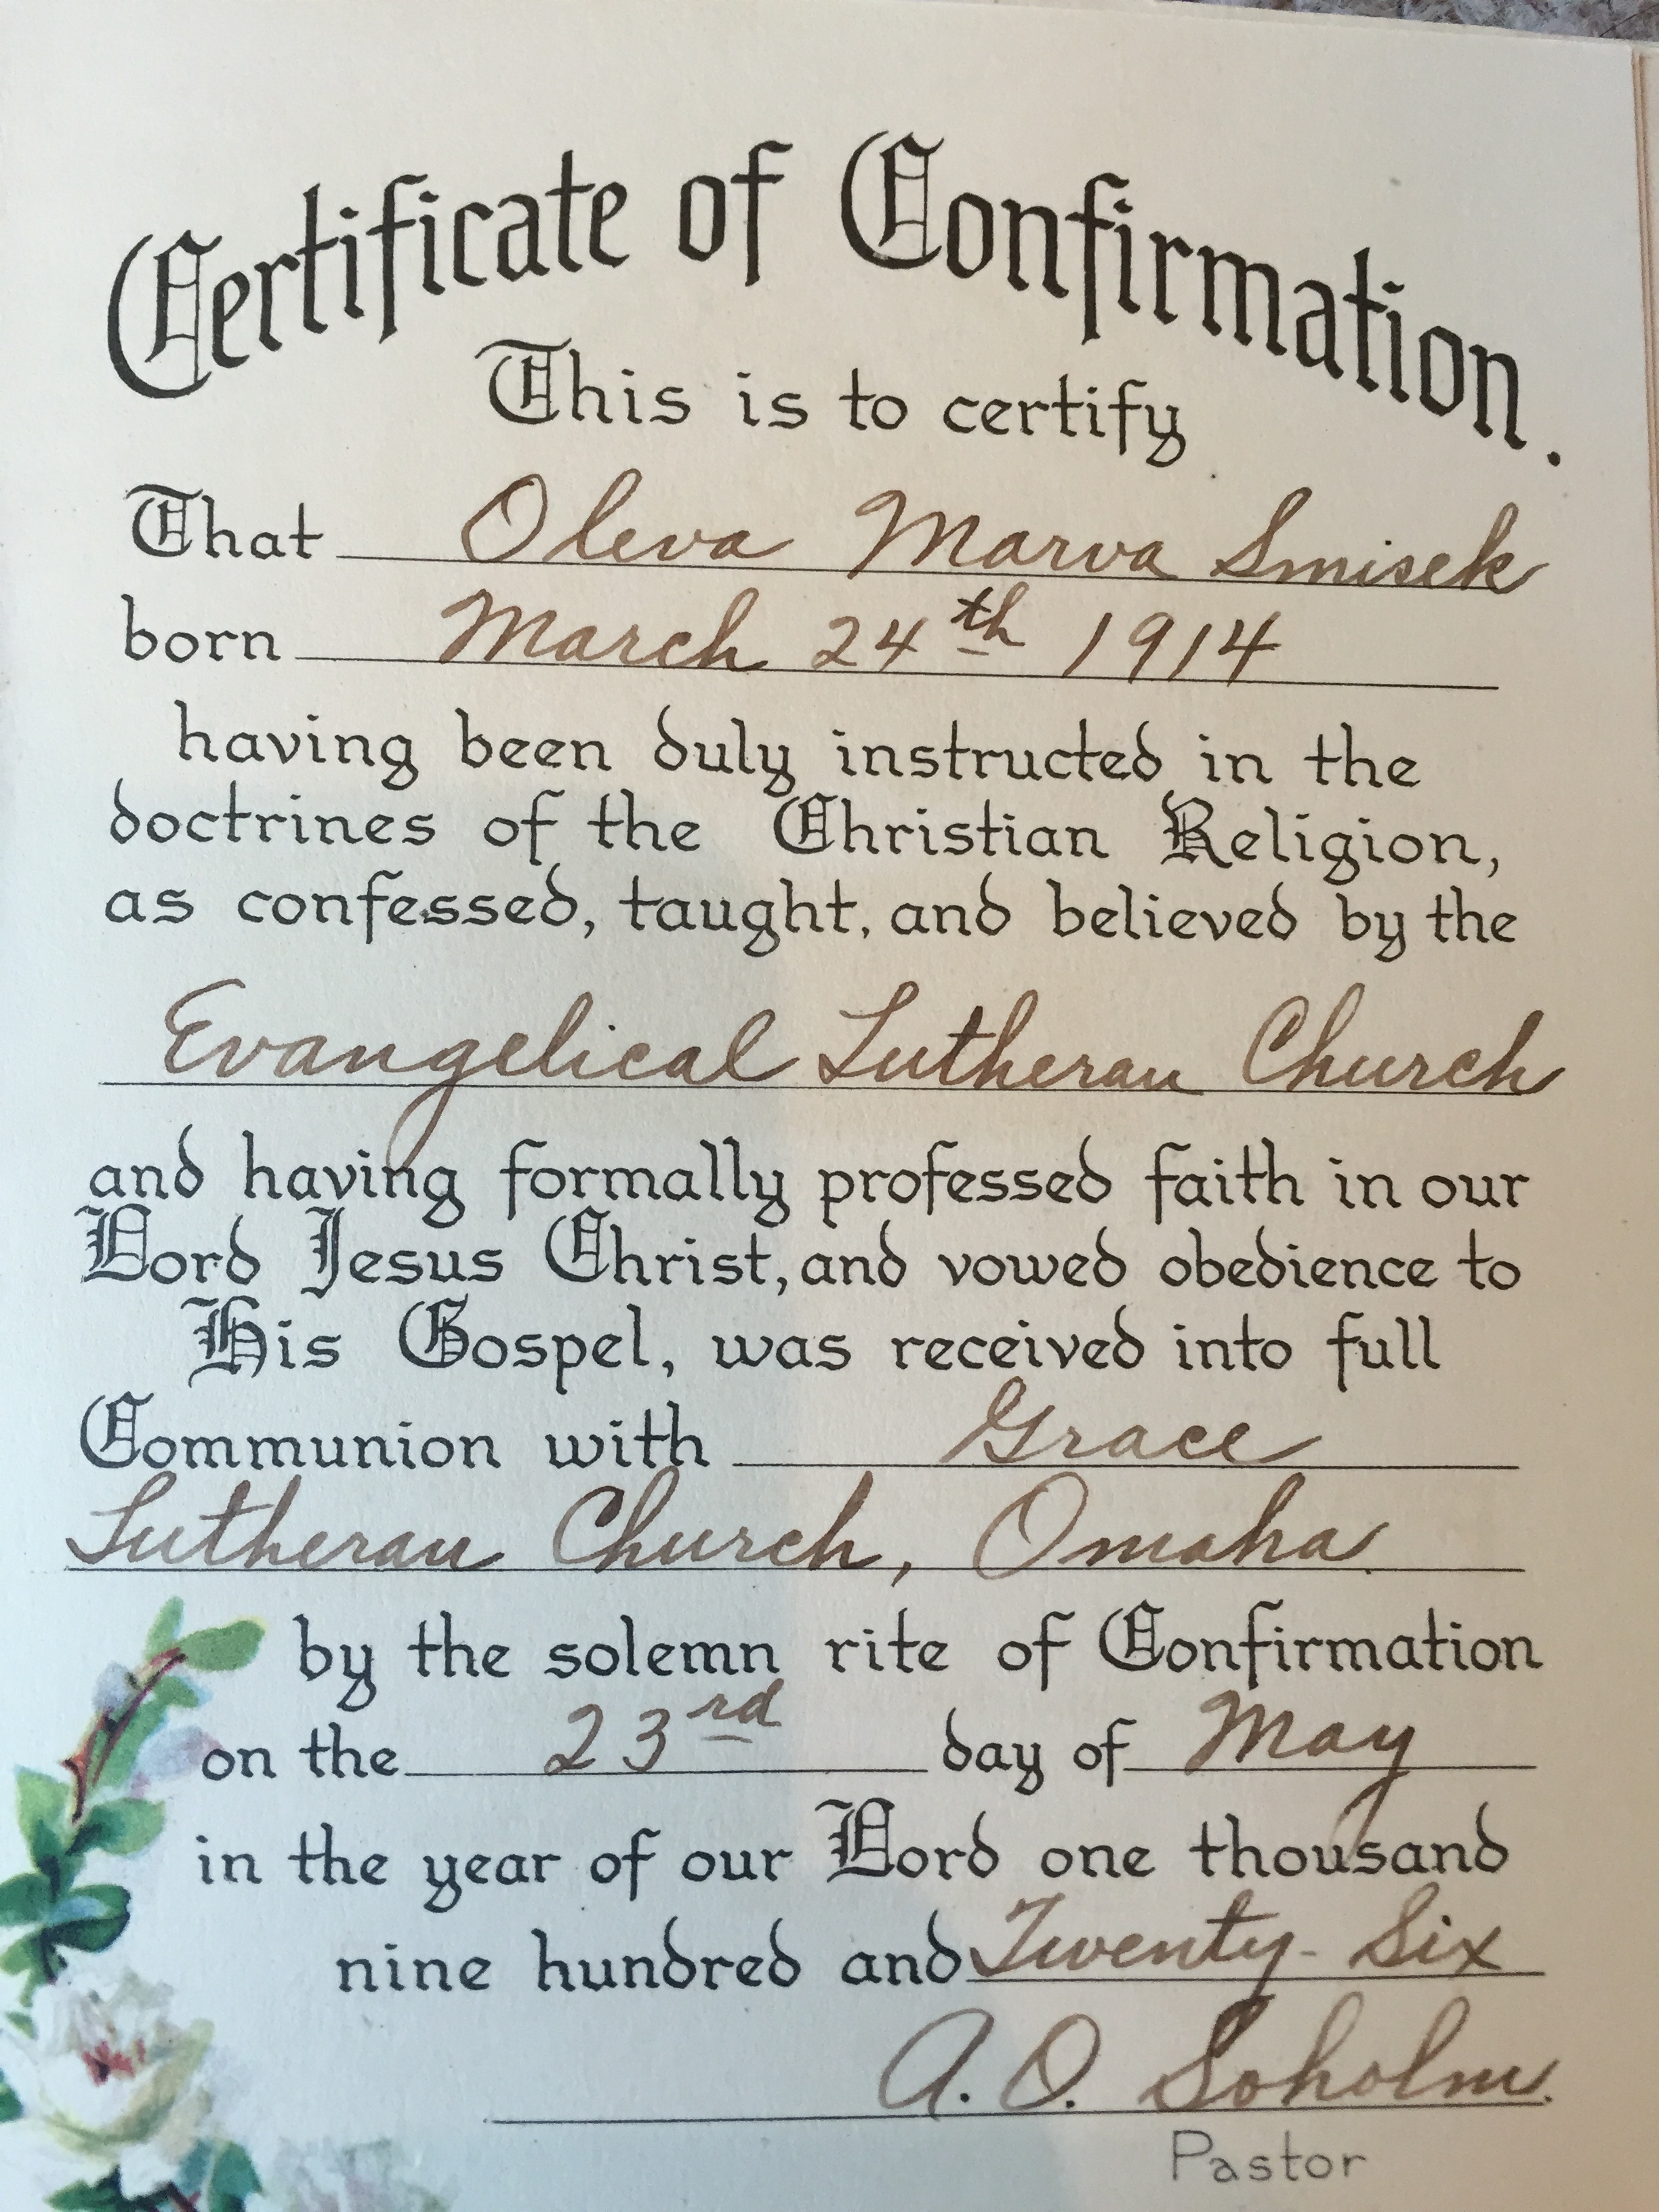 Certificate of Confirmation.
This is to certify
That Oleva Marva Smisek
born March 24th 1914
having been duly instructed in the
doctrines of the Christian Religion,
as confessed, taught, and believed by the
Evangelical Lutheran Church
and having formally professed faith in our
Lord Jesus Christ, and vowed obedience to
His Gospel, was received into full
Communion with Grace
Lutheran Church, Omaha
by the solemn rite of Confirmation
on the 23rd day of May
in the year of our Lord one thousand
nine hundred and Twenty-Six
A. O. Soholm.
Pastor